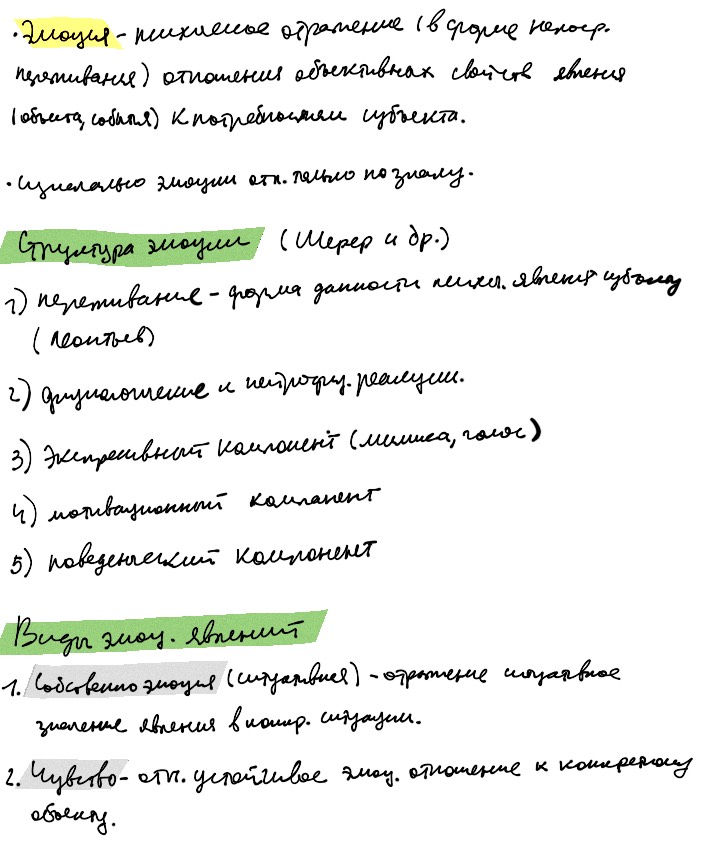 · Эмоция - психическое отражение (в форме непоср.
переживания) отношения объективных свойств явления
(объекта, события) к потребностям субъекта.
· Изначально эмоции отл. только по знаку.
Структура эмоции (Шерер и др.)
1) переживание - форма данности псих. явления субъекту
(Леонтьев)
2) физиологические и нейрофиз. реакции.
3) экспрессивный компонент (мимика, голос)
4) мотивационный компонент
5) поведенческий компонент
Виды эмоц. явлений
1. Собственно эмоция (ситуативная) - отражение ситуативное
значение явления в конкр. ситуации.
2. Чувство - отн. устойчивое эмоц. отношение к конкретному
объекту.